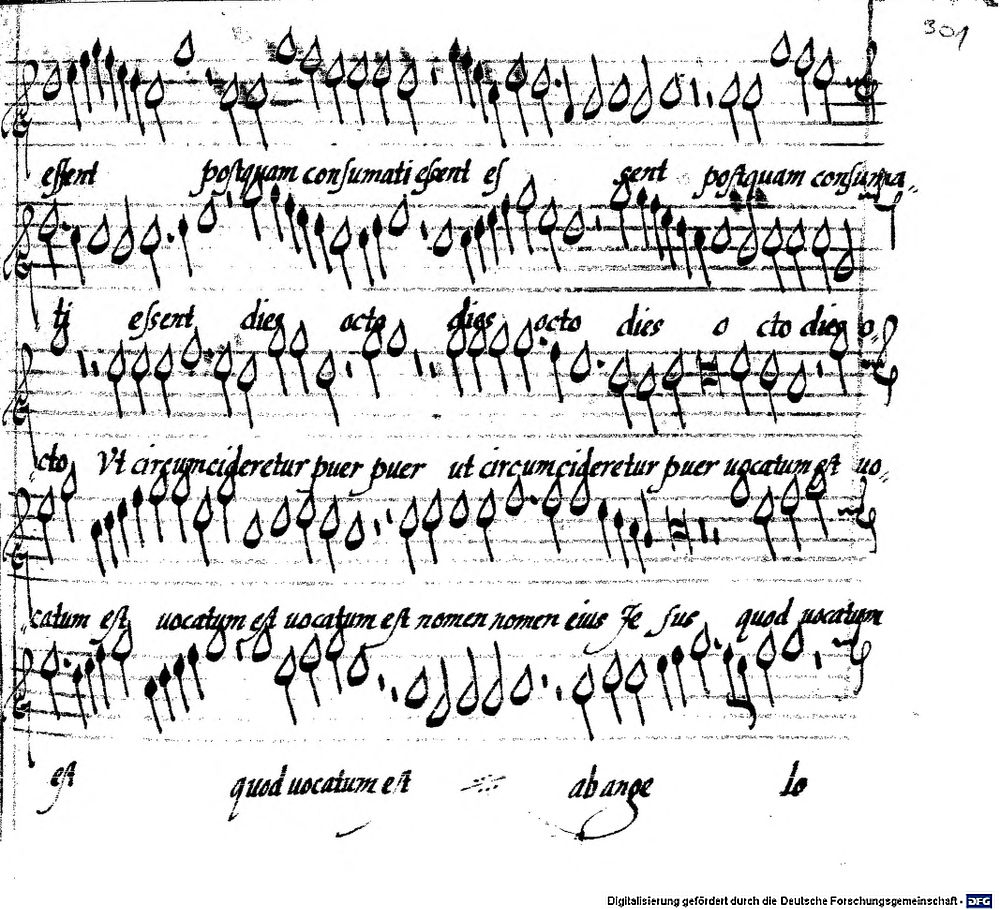 301
essent postquam consumati essent es sent postquam consuma
ti essent dies octo dies octo dies o cto dies o
cto Vt circumcideretur puer puer ut circumcideretur puer uocatum est uo
catum est uocatum est uocatum est nomen nomen eius Je sus quod uocatum
est quod uocatum est ab ange lo
Digitalisierung gefördert durch die Deutsche Forschungsgemeinschaft - DFG